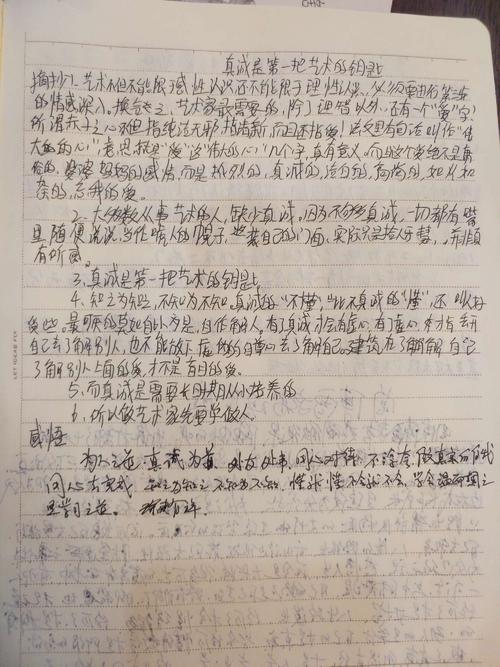 真诚是第一把艺术的钥匙
摘抄1.艺术不但不能限于感性认识还不能限于理性认识,必须要由第三步
的情感深入。换言之,艺术家最需要的,除了理智以外,还有一个"爱"字,
所谓赤子之心不但指纯洁无邪,指清新,而且还指爱!法文里有句话叫作"伟
大的心",意思就是"爱"这"伟大的心"几个字,真有意义,而且这个爱绝不是庸
俗的,婆婆妈妈的感情,而是热烈的,真诚的,洁白的,高尚的,如火如
荼的,忘我的爱。
2.大多数从事艺术的人,缺少真诚。因为不够真诚,一切都
且随便说说,当作唬人的幌子,装自己的门面,实际只是拾人牙慧,并非
有所感。
3.真诚是第一把艺术的钥匙
4.知之为知之,不知为不知。真诚的"不懂",比不真诚的"懂",还叫人好
受些。最可厌的莫如自以为是,自作解人。有了真诚才会有虚心,有了虚心,才
自己去了解别人,也不能放下虚伪的自尊心去了解自己。建筑在了解自己
了解别人上面的爱,才不是盲目的爱。
5.而真诚是需要长时期从小培养的
6.所以做艺术家先要学做人。
感悟
为人之道,真诚为首,
同人 知之为知之不知为不知,懂就懂不会就不会,学会
LET IDEAS FLY